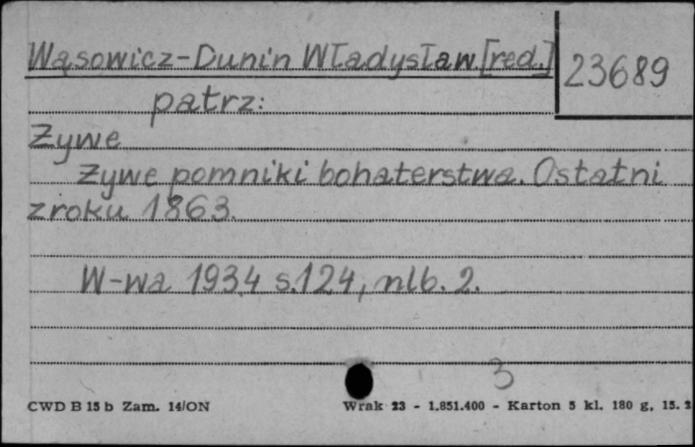 Wąsowicz-Dunin Władysław [red.] 23689
patrz:
Żywe
Żywe pomniki bohaterstwa. Ostatni
z roku 1863.
W-wa 1934 s.124, nlb. 2.
3
CWD B 15 b Zam. 14/ON Wrak 23 - 1.851.400 - Karton 5 kl. 180 g, 15.